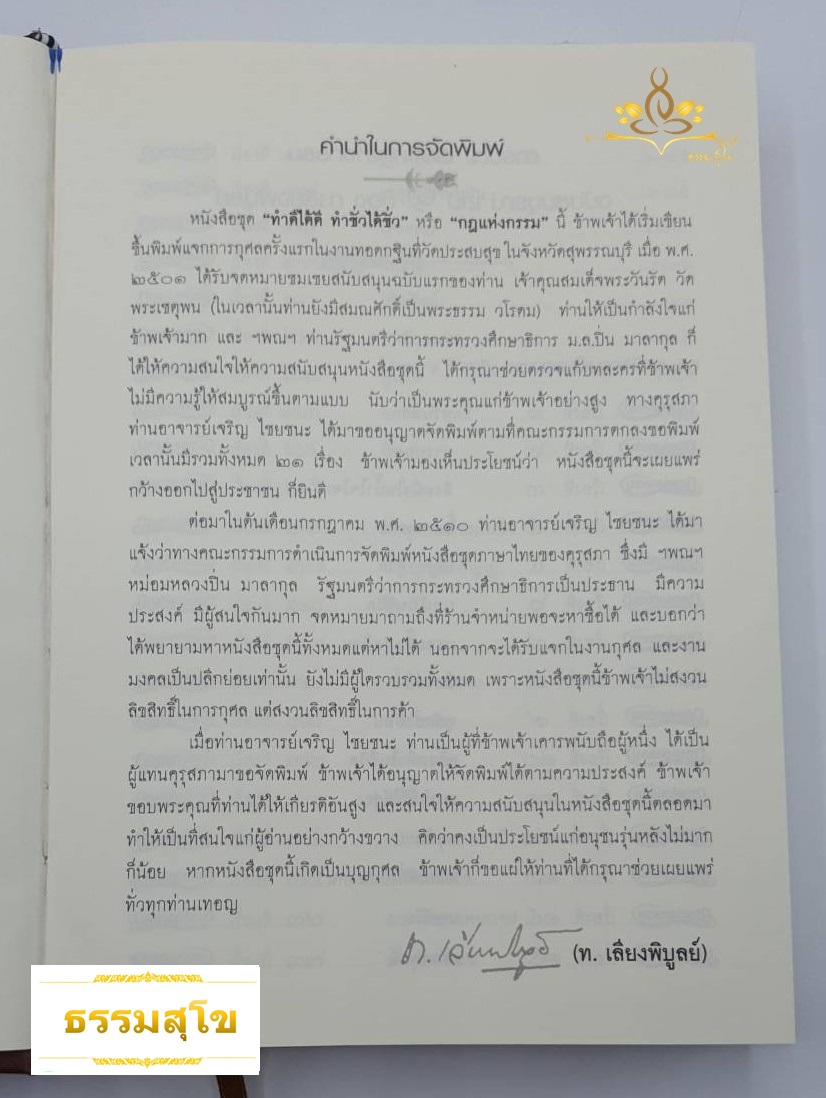 คำนำในการจัดพิมพ์
หนังสือชุด “ทำดีได้ดี ทำชั่วได้ชั่ว” หรือ “กฎแห่งกรรม” นี้ ข้าพเจ้าได้เริ่มเขียน
ขึ้นพิมพ์แจกการกุศลครั้งแรกในงานทอดกฐินที่วัดประสบสุข ในจังหวัดสุพรรณบุรี เมื่อ พ.ศ.
๒๕๐๑ ได้รับจดหมายชมเชยสนับสนุนฉบับแรกของท่าน เจ้าคุณสมเด็จพระวันรัต วัด
พระเชตุพน (ในเวลานั้นท่านยังมีสมณศักดิ์เป็นพระธรรม วโรดม) ท่านให้เป็นกำลังใจแก่
ข้าพเจ้ามาก และ ฯพณฯ ท่านรัฐมนตรีว่าการกระทรวงศึกษาธิการ ม.ล.ปิ่น มาลากุล ก็
ได้ให้ความสนใจให้ความสนับสนุนหนังสือชุดนี้ ได้กรุณาช่วยตรวจแก้บทละครที่ข้าพเจ้า
ไม่มีความรู้ให้สมบูรณ์ขึ้นตามแบบ นับว่าเป็นพระคุณแก่ข้าพเจ้าอย่างสูง ทางคุรุสภา
ท่านอาจารย์เจริญ ไชยชนะ ได้มาขออนุญาตจัดพิมพ์ตามที่คณะกรรมการตกลงขอพิมพ์
เวลานั้นมีรวมทั้งหมด ๒๑ เรื่อง ข้าพเจ้ามองเห็นประโยชน์ว่า หนังสือชุดนี้จะเผยแพร่
กว้างออกไปสู่ประชาชน ก็ยินดี
ต่อมาในต้นเดือนกรกฎาคม พ.ศ. ๒๕๑๐ ท่านอาจารย์เจริญ ไชยชนะ ได้มา
แจ้งว่าทางคณะกรรมการดำเนินการจัดพิมพ์หนังสือชุดภาษาไทยของคุรุสภา ซึ่งมี ฯพณฯ
หม่อมหลวงปิ่น มาลากุล รัฐมนตรีว่าการกระทรวงศึกษาธิการเป็นประธาน มีความ
ประสงค์ มีผู้สนใจกันมาก จดหมายมาถามถึงที่ร้านจำหน่ายพอจะหาซื้อได้ และบอกว่า
ได้พยายามหาหนังสือชุดนี้ทั้งหมดแต่หาไม่ได้ นอกจากจะได้รับแจกในงานกุศล และงาน
มงคลเป็นปลีกย่อยเท่านั้น ยังไม่มีผู้ใดรวบรวมทั้งหมด เพราะหนังสือชุดนี้ข้าพเจ้าไม่สงวน
ลิขสิทธิ์ในการกุศล แต่สงวนลิขสิทธิ์ในการค้า
เมื่อท่านอาจารย์เจริญ ไชยชนะ ท่านเป็นผู้ที่ข้าพเจ้าเคารพนับถือผู้หนึ่ง ได้เป็น
ผู้แทนคุรุสภามาขอจัดพิมพ์ ข้าพเจ้าได้อนุญาตให้จัดพิมพ์ได้ตามความประสงค์ ข้าพเจ้า
ขอบพระคุณที่ท่านได้ให้เกียรติอันสูง และสนใจให้ความสนับสนุนในหนังสือชุดนี้ตลอดมา
ทำให้เป็นที่สนใจแก่ผู้อ่านอย่างกว้างขวาง คิดว่าคงเป็นประโยชน์แก่อนุชนรุ่นหลังไม่มาก
ก็น้อย หากหนังสือชุดนี้เกิดเป็นบุญกุศล ข้าพเจ้าก็ขอแผ่ให้ท่านที่ได้กรุณาช่วยเผยแพร่
ทั่วทุกท่านเทอญ
(ท. เลียงพิบูลย์)
ธรรมสุโข